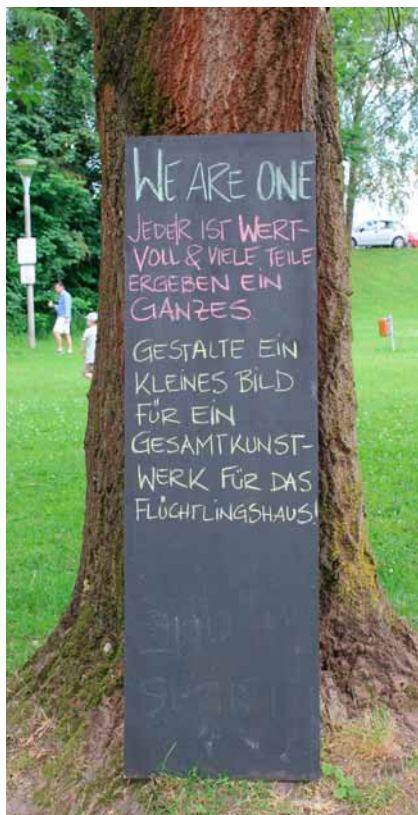 WE ARE ONE
JEDE/R IST WERT-
VOLL & VIELE TEILE
ERGEBEN EIN
GANZES.
GESTALTE EIN
KLEINES BILD
FÜR EIN
GESAMTKUNST-
WERK FÜR DAS
FLÜCHTLINGSHAUS!